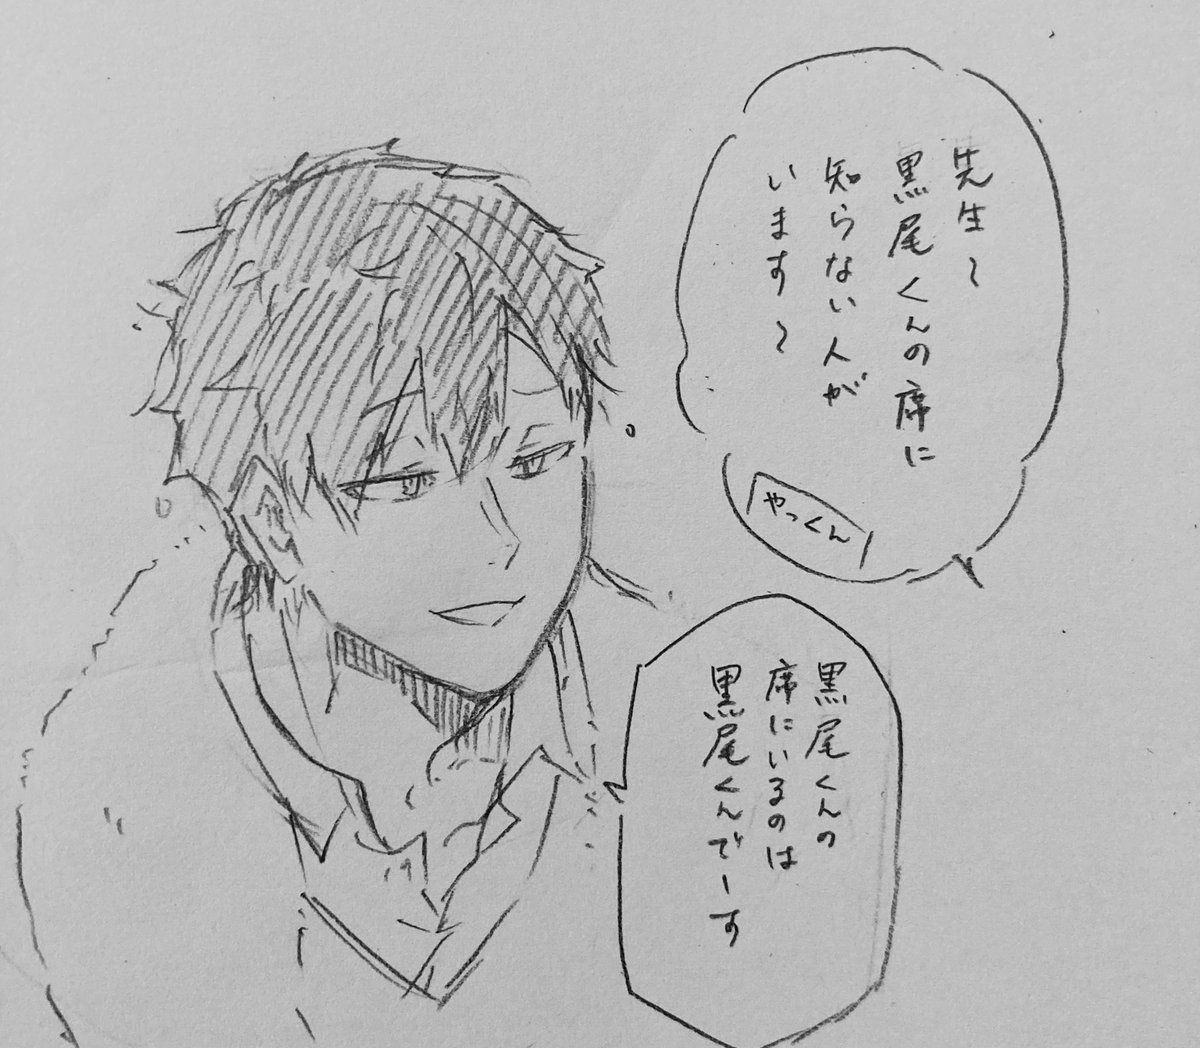 先生〜
黒尾くんの席に
知らない人が
います〜
やっくん
黒尾くんの
席にいるのは
黒尾くんでーす